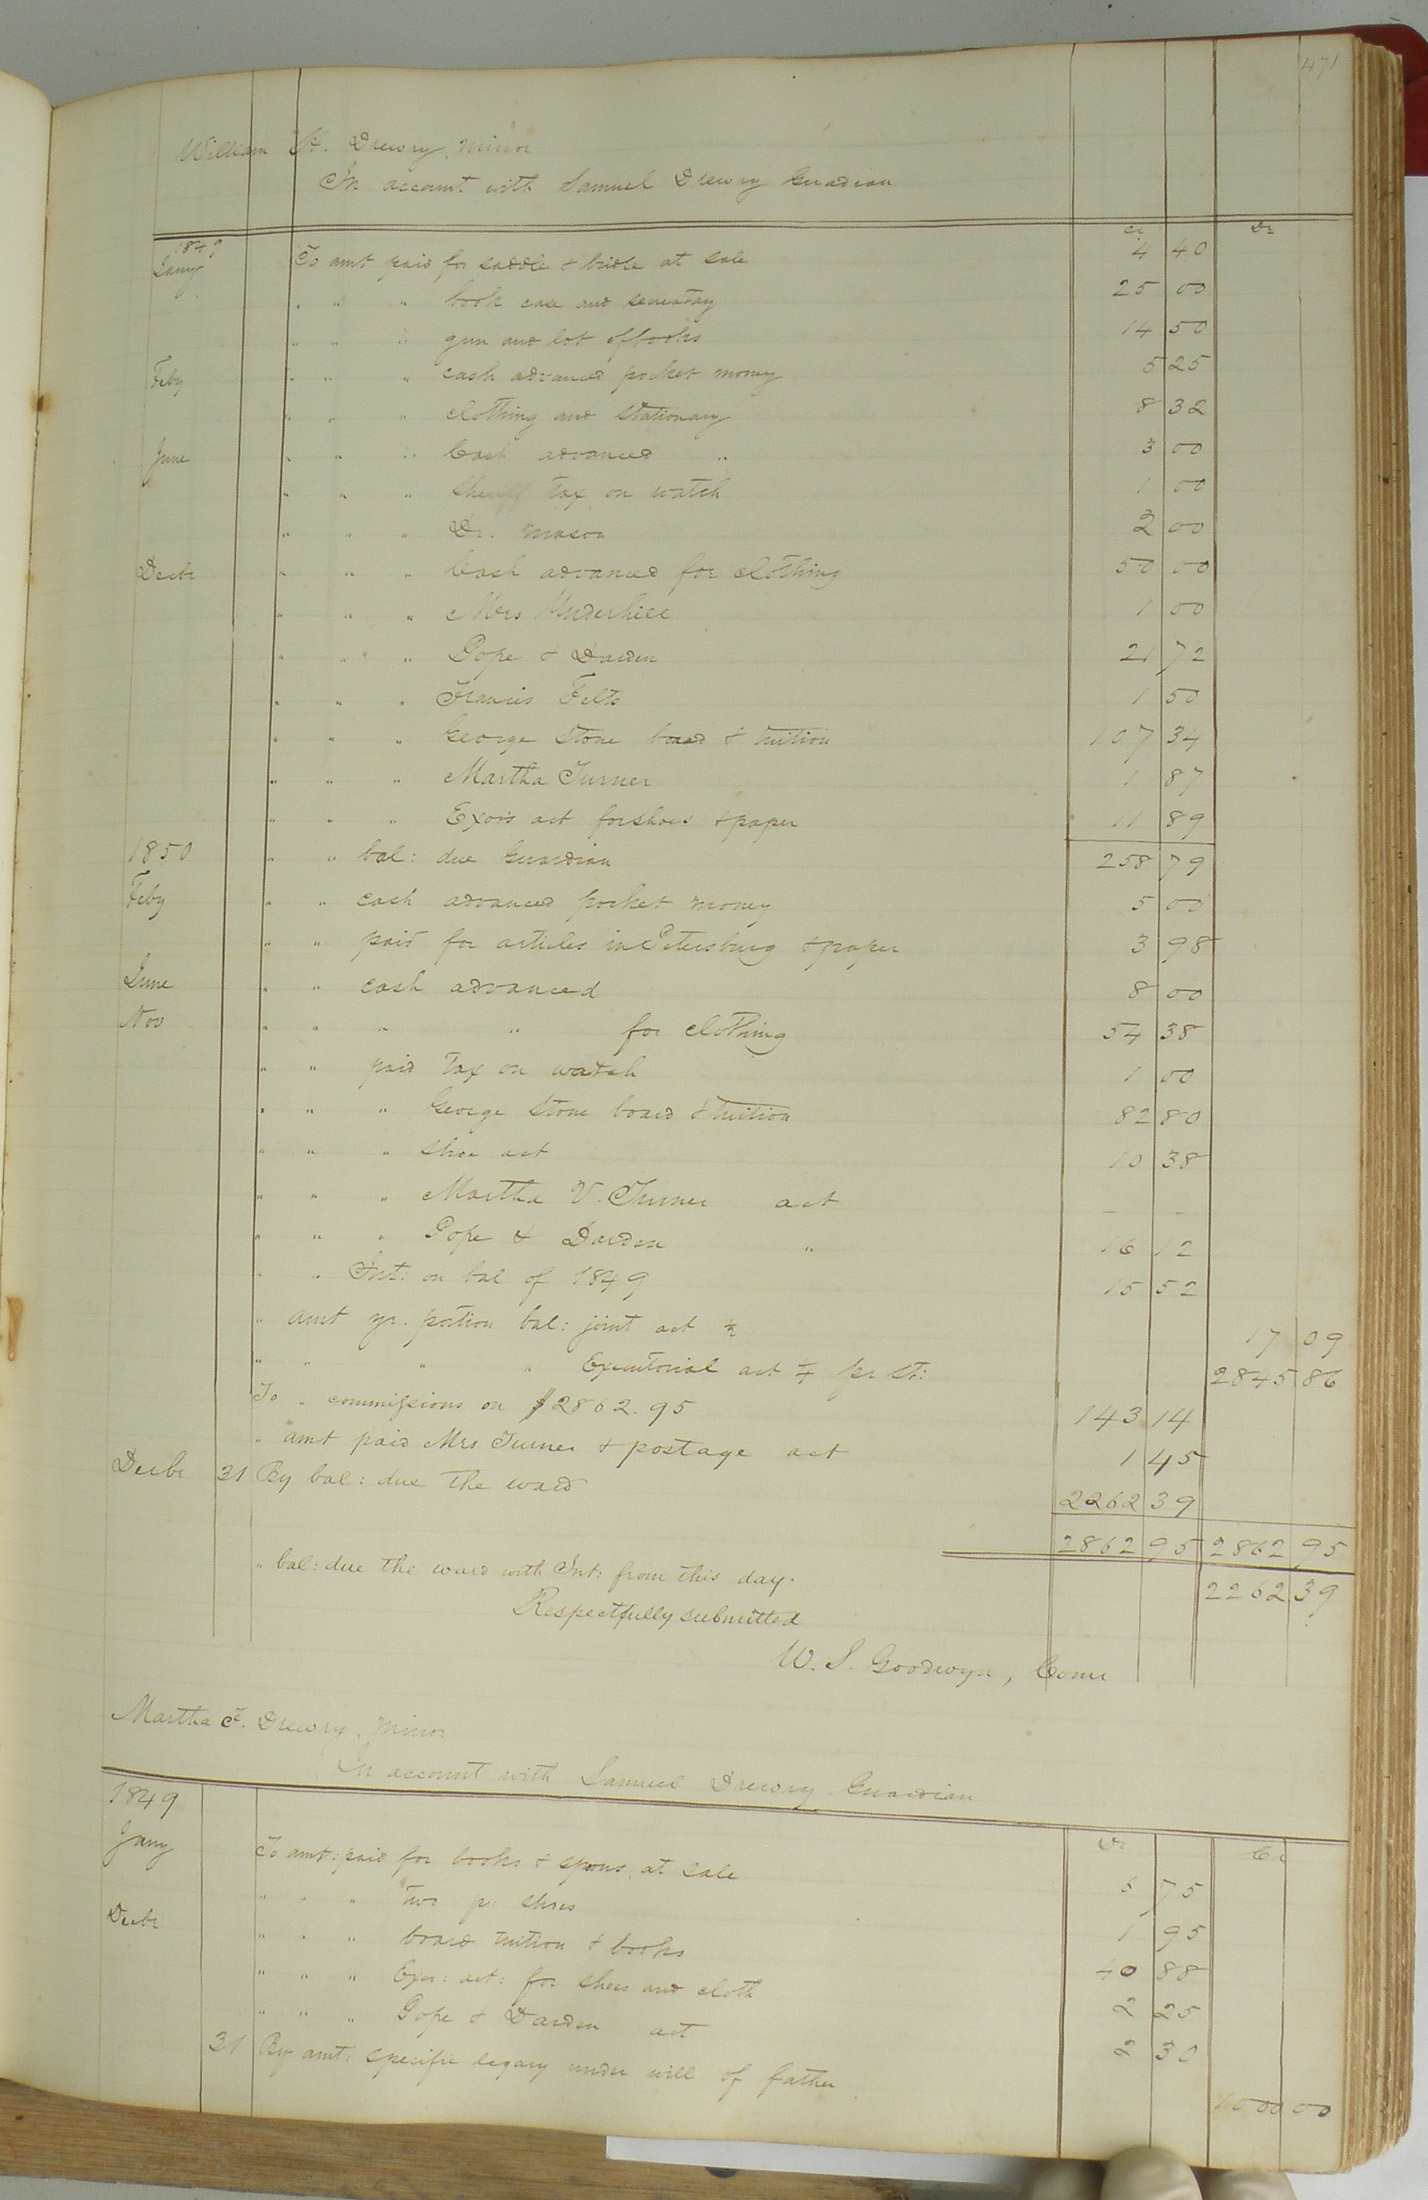 471
William H. Drewry, minor
In account with Samuel Drewry Guardian
Cr Dr
1849
Jany To amt paid for saddle & bridle at sale 4 40
" " " book case and secretary 25 00
" " " gun and lot of books 14 50
Feby " " " cash advanced pocket money 5 25
" " " clothing and stationary 8 32
June " " " Cash advanced " 3 00
" " " Sheriff tax on watch 1 00
" " " Dr. Mason 2 00
Decbr " " " Cash advanced for clothing 50 00
" " " Mrs Underhill 1 00
" " " Pope & Darden 21 72
" " " Francis Felts 1 50
" " " George Stone board & tuition 107 34
" " " Martha Turner 1 87
" " " Exors act for shoes & paper 11 89
1850 " " bal: due Guardian 258 79
Feby " " cash advanced pocket money 5 00
" " paid for articles in Petersburg & paper 3 98
June " " cash advanced 8 00
Nov " " " " for clothing 54 38
" " paid tax on watch 1 00
" " " George Stone board & tuition 82 80
" " " shoe act 10 38
" " " Martha V. Turner act — —
" " " Pope & Darden " 16 12
" " Int: on bal of 1849 15 52
" amt yr. portion bal: joint act ½ 17 09
" " " " Executorial act ¼ pr st: 2845 86
To " commissions on $2862.95 143 14
" amt paid Mrs Turner & postage act 1 45
Decbr 31 By bal: due the ward 2262 39
2862 95 2862 95
" bal: due the ward with Int: from this day. 2262 39
Respectfully submitted
W. S. Goodwyn, Comr
Martha F. Drewry, minor
In account with Samuel Drewry Guardian
1849 Dr Cr
Jany To amt: paid for books & spoons at sale 5 75
" " " two pr shoes 1 95
Decbr " " " board tuition & books 40 88
" " " Exor: act: for shoes and cloth 2 25
" " " Pope & Darden act 2 30
31 By amt: specific legacy under will of father 1000 00